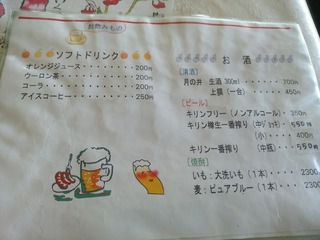 お飲みもの
ソフトドリンク
オレンジジュース・・・・・・・200円
ウーロン茶・・・・・・・・・・200円
コーラ・・・・・・・・・・・・200円
アイスコーヒー・・・・・・・・250円
お 酒
[清酒]
月の井 生酒 300ml・・・・・700円
上撰 (一合)・・・・・450円
[ビール]
キリンフリー (ノンアルコール) 350円
キリン樽生一番搾り (中ジョッキ) 550円
(小) 400円
キリン一番搾り (中瓶)・・550円
[焼酎]
いも:大洗いも (1本)・・・2300
麦:ピュアブルー (1本)・・2300